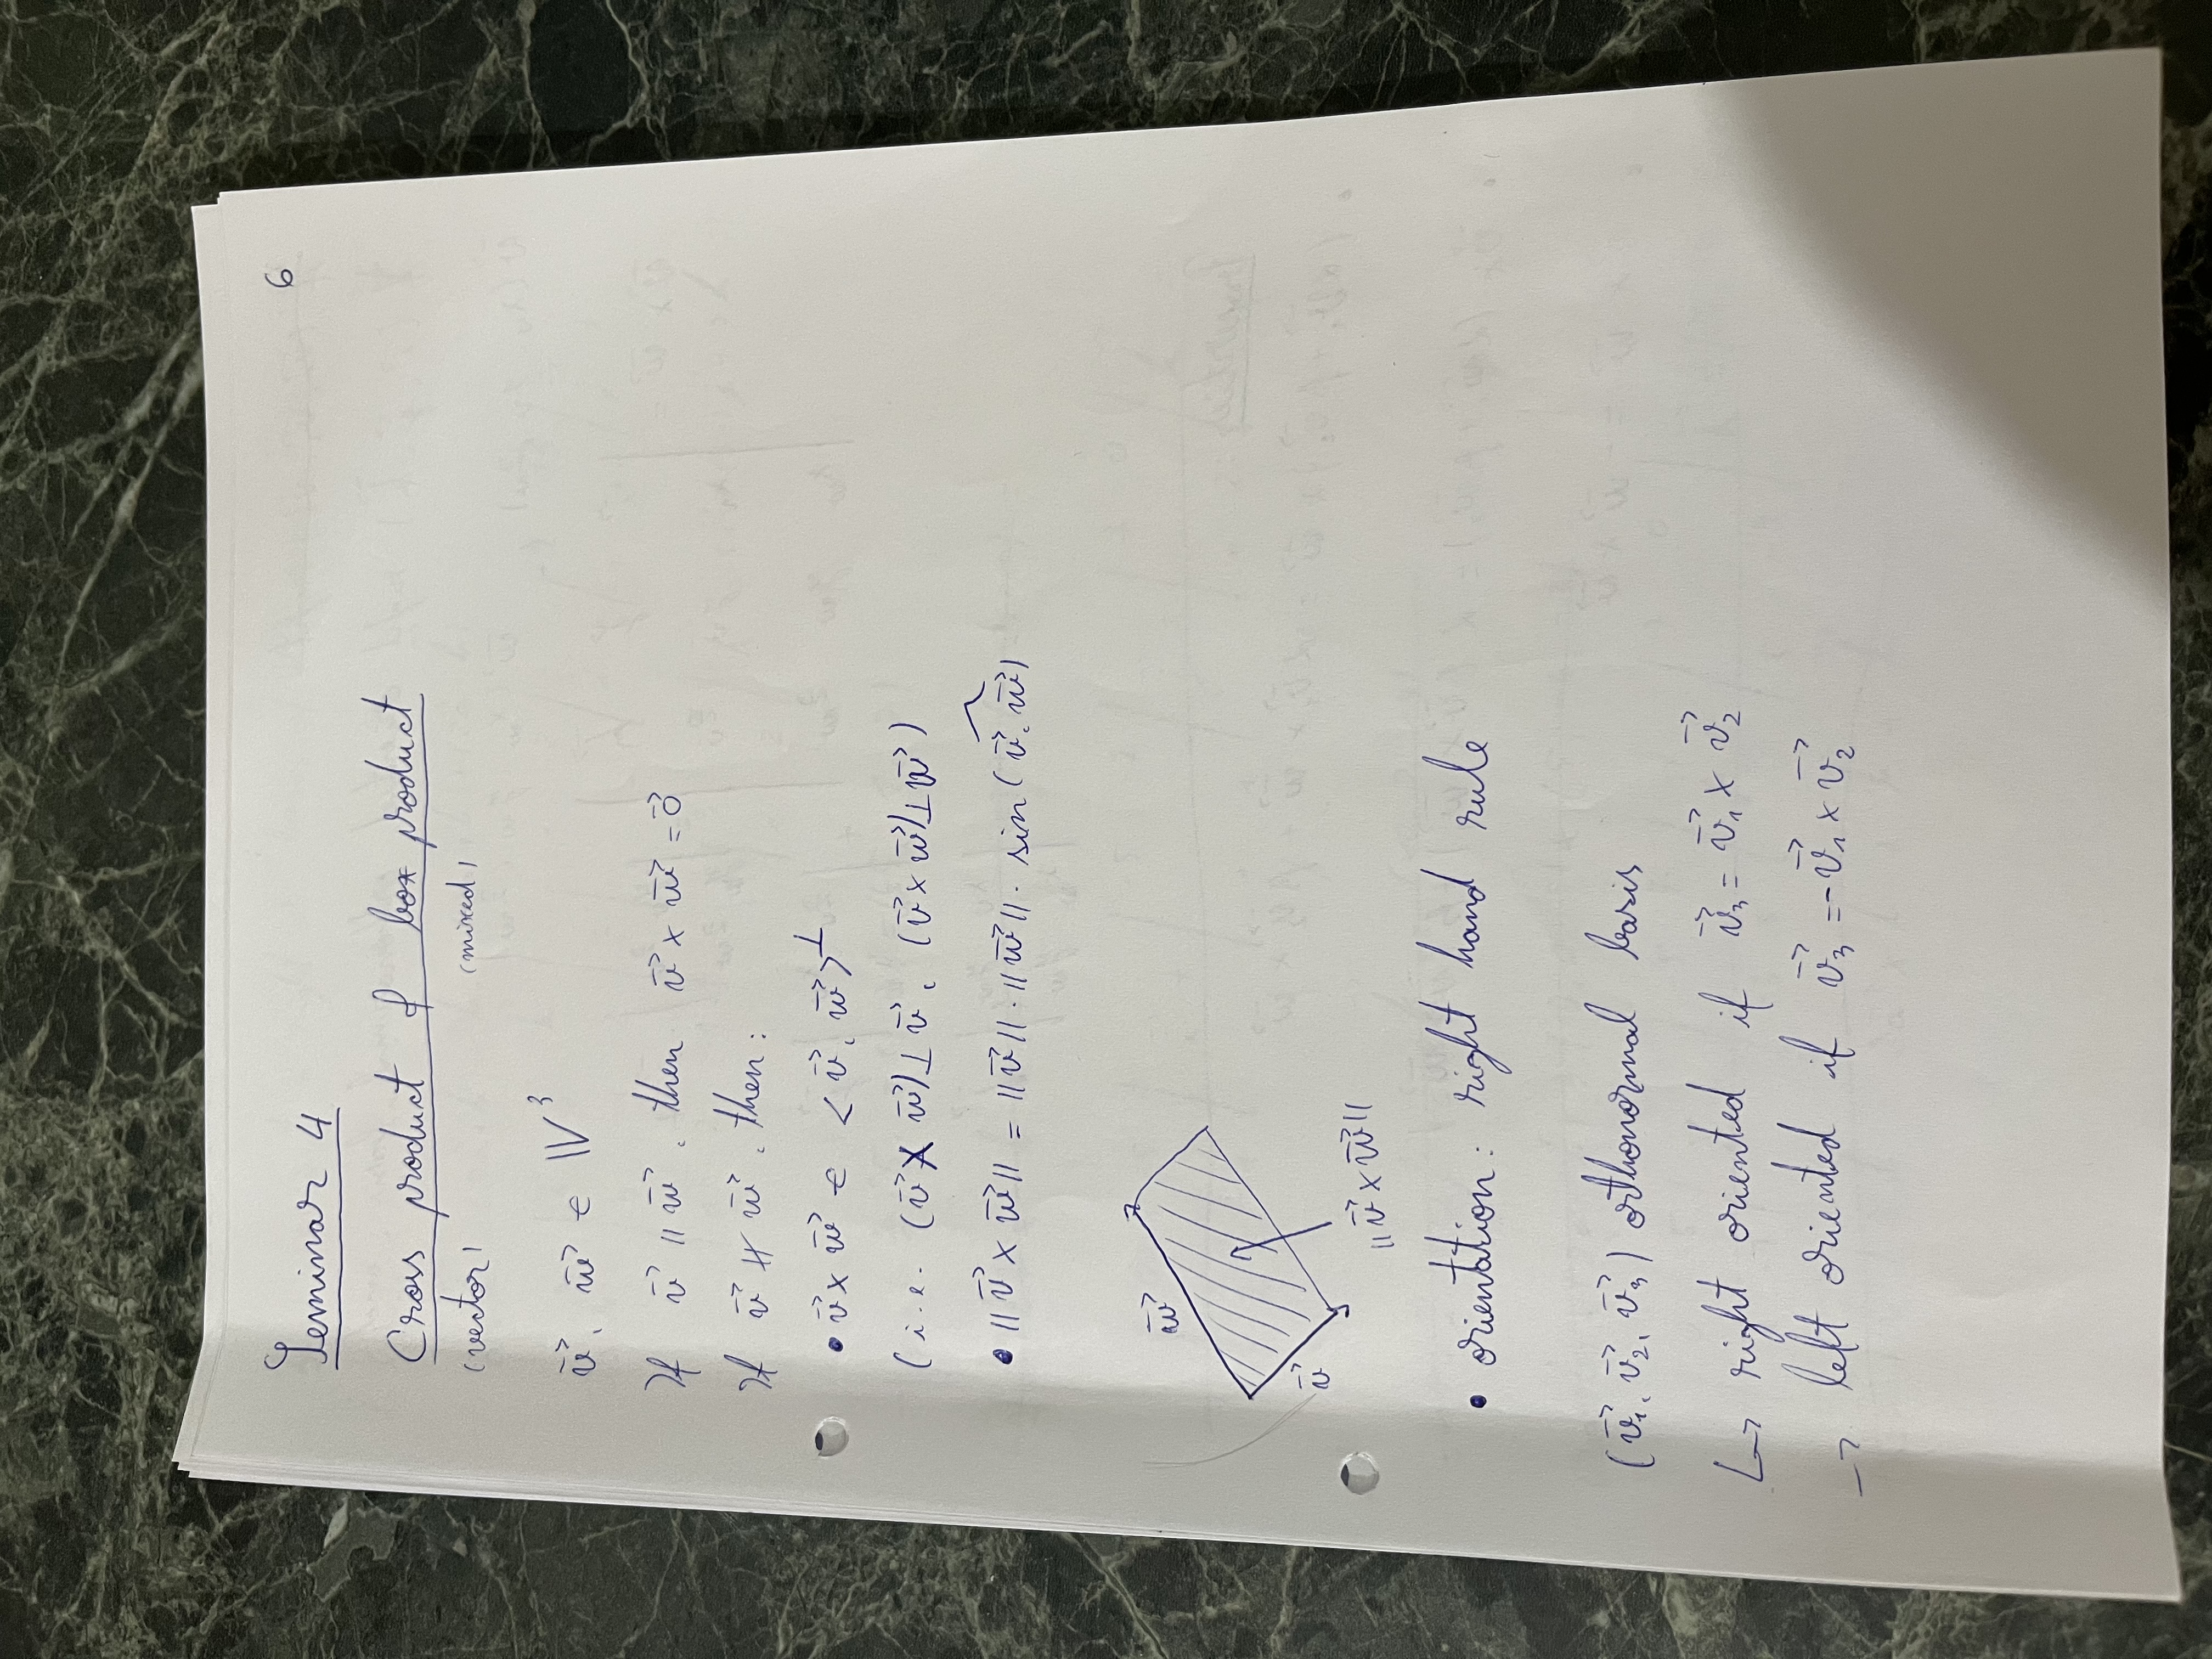 6
Seminar 4
Cross product & box product
(vector) (mixed)
v⃗, w⃗ ∈ 𝕍³
If v⃗ ∥ w⃗, then v⃗ × w⃗ = 0⃗
If v⃗ ∦ w⃗, then:
• v⃗ × w⃗ ∈ <v⃗, w⃗>⊥
(i.e. (v⃗ × w⃗) ⊥ v⃗, (v⃗ × w⃗) ⊥ w⃗)
• ||v⃗ × w⃗|| = ||v⃗|| · ||w⃗|| · sin(v⃗, w⃗)
w⃗
v⃗
||v⃗ × w⃗||
• orientation: right hand rule
(v⃗₁, v⃗₂, v⃗₃) orthonormal basis
↳ right oriented if v⃗₃ = v⃗₁ × v⃗₂
→ left oriented if v⃗₃ = -v⃗₁ × v⃗₂